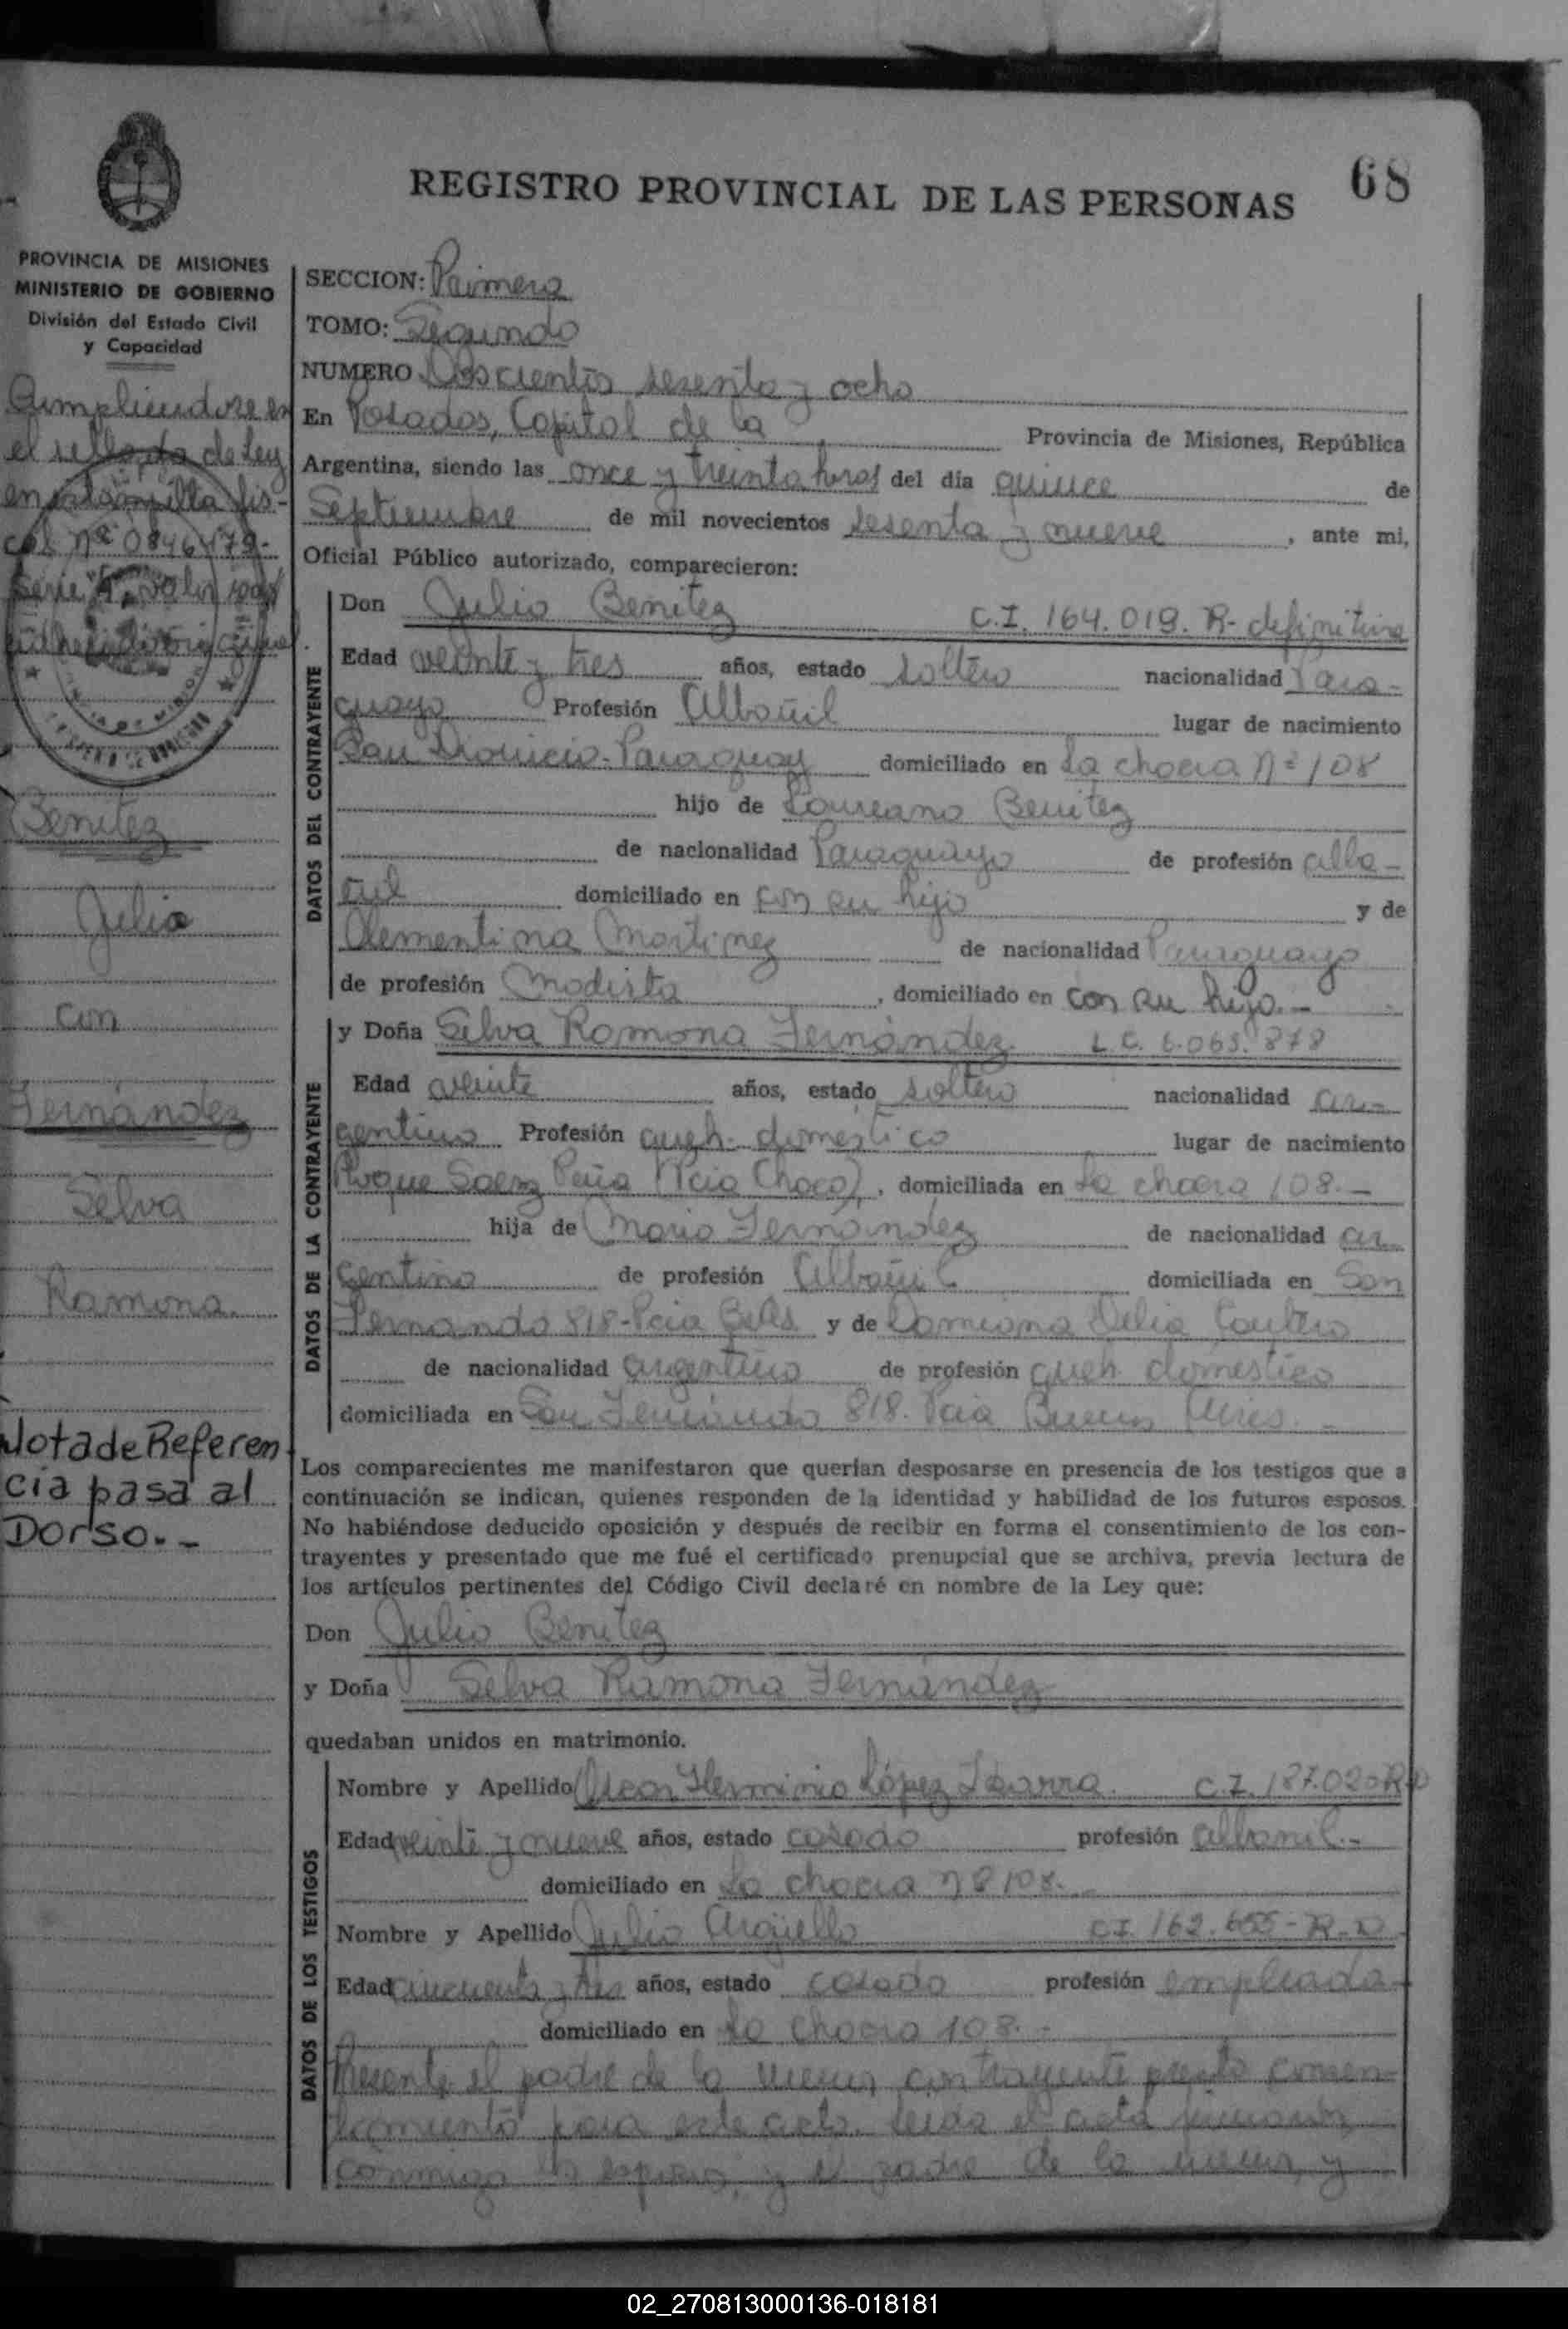 REGISTRO PROVINCIAL DE LAS PERSONAS 68
PROVINCIA DE MISIONES
MINISTERIO DE GOBIERNO
División del Estado Civil
y Capacidad
Cumpliendose en
el sellado de Ley
en estampilla fis-
cal nº 0846479-
Serie A valor
Benitez
Julio
con
Fernández
Selva
Ramona.
Nota de Referen
cia pasa al
Dorso.-
SECCION: Primera
TOMO: Segundo
NUMERO Doscientos sesenta y ocho
En Posadas, Capital de la Provincia de Misiones, República
Argentina, siendo las once y treinta horas del día quince de
Septiembre de mil novecientos sesenta y nueve, ante mi,
Oficial Público autorizado, comparecieron:
DATOS DEL CONTRAYENTE
Don Julio Benitez C.I. 164.019. R- definitiva
Edad veinte y tres años, estado soltero nacionalidad Para-
guaya Profesión Albañil lugar de nacimiento
San Dionicio-Paraguay domiciliado en La chacra Nº 108
hijo de Laureano Benitez
de nacionalidad Paraguayo de profesión alba-
ñil domiciliado en con su hijo y de
Clementina Martinez de nacionalidad Paraguaya
de profesión Modista, domiciliado en con su hijo.-
DATOS DE LA CONTRAYENTE
y Doña Selva Ramona Fernández L.C. 6.065.878
Edad veinte años, estado soltera nacionalidad ar-
gentina Profesión queh. domestico lugar de nacimiento
Roque Saenz Peña (Pcia Chaco), domiciliada en La chacra 108.-
hija de Mario Fernández de nacionalidad ar-
gentino de profesión Albañil domiciliada en San
Fernando 818-Pcia BsAs y de Damiana Delia
de nacionalidad argentina de profesión queh. domestico
domiciliada en San Fernando 818. Pcia Buenos Aires.-
Los comparecientes me manifestaron que querían desposarse en presencia de los testigos que a
continuación se indican, quienes responden de la identidad y habilidad de los futuros esposos.
No habiéndose deducido oposición y después de recibir en forma el consentimiento de los con-
trayentes y presentado que me fué el certificado prenupcial que se archiva, previa lectura de
los artículos pertinentes del Código Civil declaré en nombre de la Ley que:
Don Julio Benitez
y Doña Selva Ramona Fernández
quedaban unidos en matrimonio.
DATOS DE LOS TESTIGOS
Nombre y Apellido Oscar Herminio López Ibarra. C.I. 187.020-R
Edad veinte y nueve años, estado casado profesión albanil.-
domiciliado en La chacra nº 108.-
Nombre y Apellido Julio Argüello C.I. 162.655-R-D
Edad cincuenta y tres años, estado casado profesión empleado-
domiciliado en La Chacra 108.-
Presente el padre de la menor contrayente presto consen-
timiento para este acto. Leida el acta firmaron
conmigo los esposos, y el padre de la menor, y
02_270813000136-018181